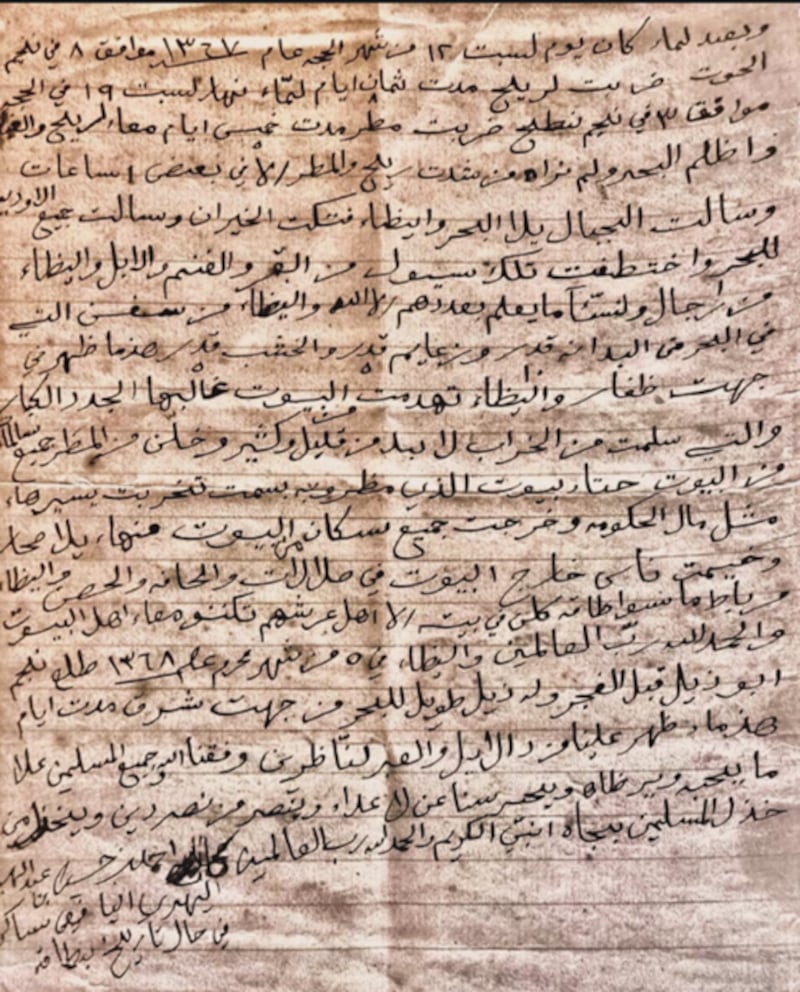 وبعد لماء كان يوم لسبت ١٢ من شهر الحجه عام ١٣٦٧ موافق ٨ في نجم
الحوت ضربت لريلح مدت ثمان ايام لتماء نهار لسبت ١٩ في الحجه
موافق ٣ في نجم نطلح ضربت مطر مدت خمس ايام معاء لريلح
واظلم البحر ولم نراه من شدت ريلح والمطر الا في بعض ساعات
وسالت الجبال يلا البحر وايظاء فتكت الخيران وسالت جميع الاوديه
للبحر واختطفت تلك سيول من البقر والغنم والابل وايظاء
من رجال ولنسئا ما يعلم بعددهم الا الله وايظاء من سفن التي
في البحر من البدانه قدر وزعايم قدر والخشب قدر هذما ظهر في
جهت ظفار وايظاء تهدمت البيوت غالبها الجدد الكبار
والتي سلمت من الخراب لابد من قليل وكثير وخلن من المطر جميع
من البيوت حتاء بيوت الذي مظروبه بسمت تخربت بسيرهاء
مثل مال الحكومه وخرجت جميع سكان البيوت منهاء يلا صحار
وخيمت ناس خارج البيوت في صلالات والحافه والحصن وايظاء
مرباط ما سوا طاقه كلن في بيته الا اهل عرشهم تكنو معاء اهل البيوت
والحمد لله رب العالمين وايظاء في ٥ من شهر محرم عام ١٣٦٨ طلع نجم
ابو ذيل قبل الفجر وله ذيل طويل للبحر من جهت شرق مدت ايام
هذماء ظهر علينا وفقنا الله وجميع المسلمين علا
ما يحبه ويرظاه ويحرسنا عن لاعداء وينصر من نصر دين ويخذل من
خذل المسلمين بجاه انبي الكريم والحمد لله رب العالمين احمد
في حال تاريخ بطاقه